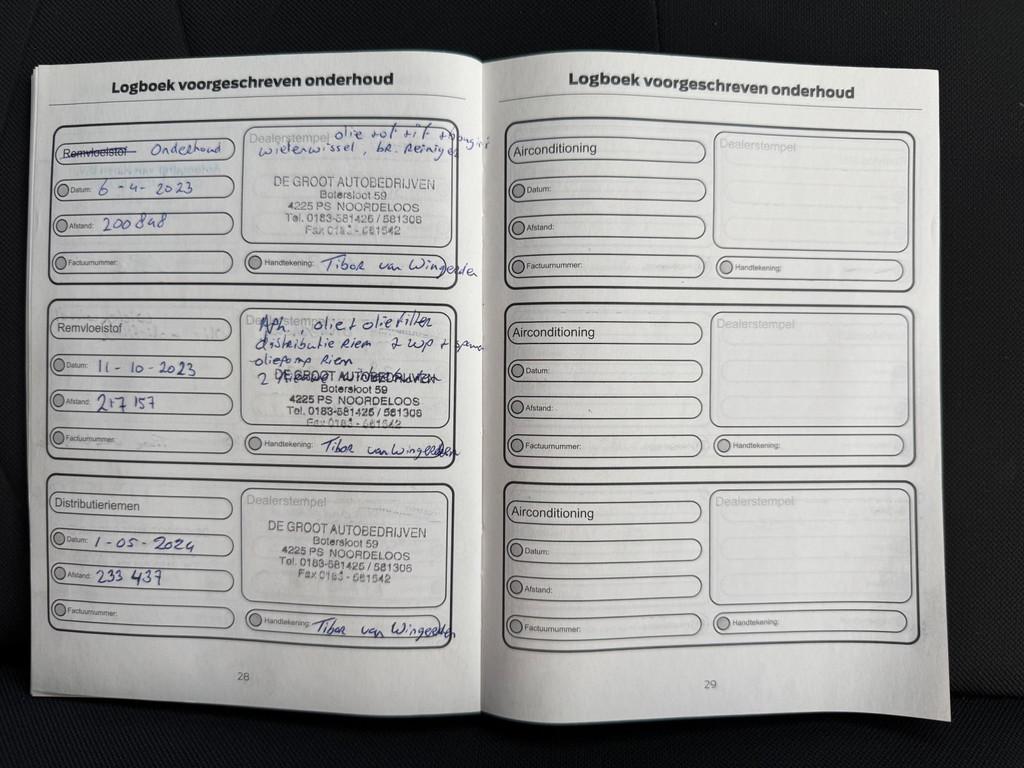 Logboek voorgeschreven onderhoud
Remvloeistof Onderhoud
Datum: 6-4-2023
Afstand: 200848
Factuurnummer:
Dealerstempel olie +of +if +
wielenwissel, br. Reiniger
DE GROOT AUTOBEDRIJVEN
Botersloot 59
4225 PS NOORDELOOS
Tel. 0183-581426 / 581306
Fax 0183 - 581542
Handtekening: Tibor van Wingerden
Remvloeistof
Datum: 11-10-2023
Afstand: 217 157
Factuurnummer:
Apk, olie + oliefilter
distributie Riem + wp +
oliepomp Riem
2
DE GROOT AUTOBEDRIJVEN
Botersloot 59
4225 PS NOORDELOOS
Tel. 0183-581426 / 581306
Fax 0183 - 581542
Handtekening: Tibor van Wingerden
Distributieriemen
Datum: 1-05-2024
Afstand: 233 437
Factuurnummer:
Dealerstempel
DE GROOT AUTOBEDRIJVEN
Botersloot 59
4225 PS NOORDELOOS
Tel. 0183-581426 / 581306
Fax 0183 - 581542
Handtekening: Tibor van Wingerden
28
Logboek voorgeschreven onderhoud
Airconditioning
Datum:
Afstand:
Factuurnummer:
Dealerstempel
Handtekening:
Airconditioning
Datum:
Afstand:
Factuurnummer:
Dealerstempel
Handtekening:
Airconditioning
Datum:
Afstand:
Factuurnummer:
Dealerstempel
Handtekening:
29